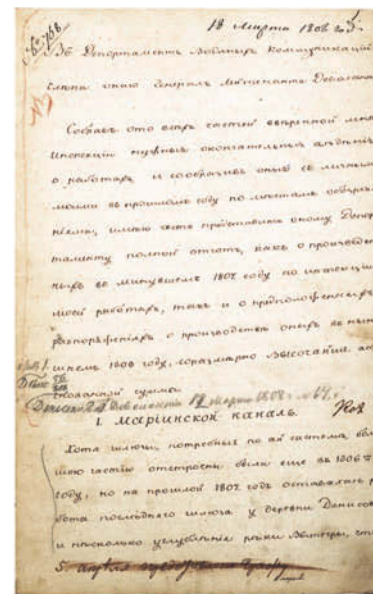 № 768
18 Марта 1808 год
Въ Департаментъ Водяныхъ Коммуникацій
члена онаго Генералъ Лейтенанта Деволана
Собравъ ото всѣхъ частей ввѣренной мнѣ
Инспекціи нужныя окончательныя свѣденія
о работахъ и сообразивъ оныя съ личными
моими въ прошломъ году по мѣстамъ обозрѣ
ніями, имѣю честь представить оному Депар
таменту полной отчетъ, какъ о произведен
ныхъ въ минувшемъ 1807 году по инспекціи
моей работахъ, такъ и о предположеніяхъ
распоряженіяхъ о производствѣ оныхъ въ нын
шнемъ 1808 году, соразмѣрно Высочайше ас
сигнованной суммы
Марта 1808
1. Маріинской каналъ.
Хотя шлюзы, потребные по сей системѣ, бол
шею частію отстроены были еще въ 1806 м
году, но на прошлой 1807 годъ оставалась ра
бота послѣдняго шлюза у деревни Денисово
и нѣсколько углубленія рѣки Вытегры, что
5. апрѣля